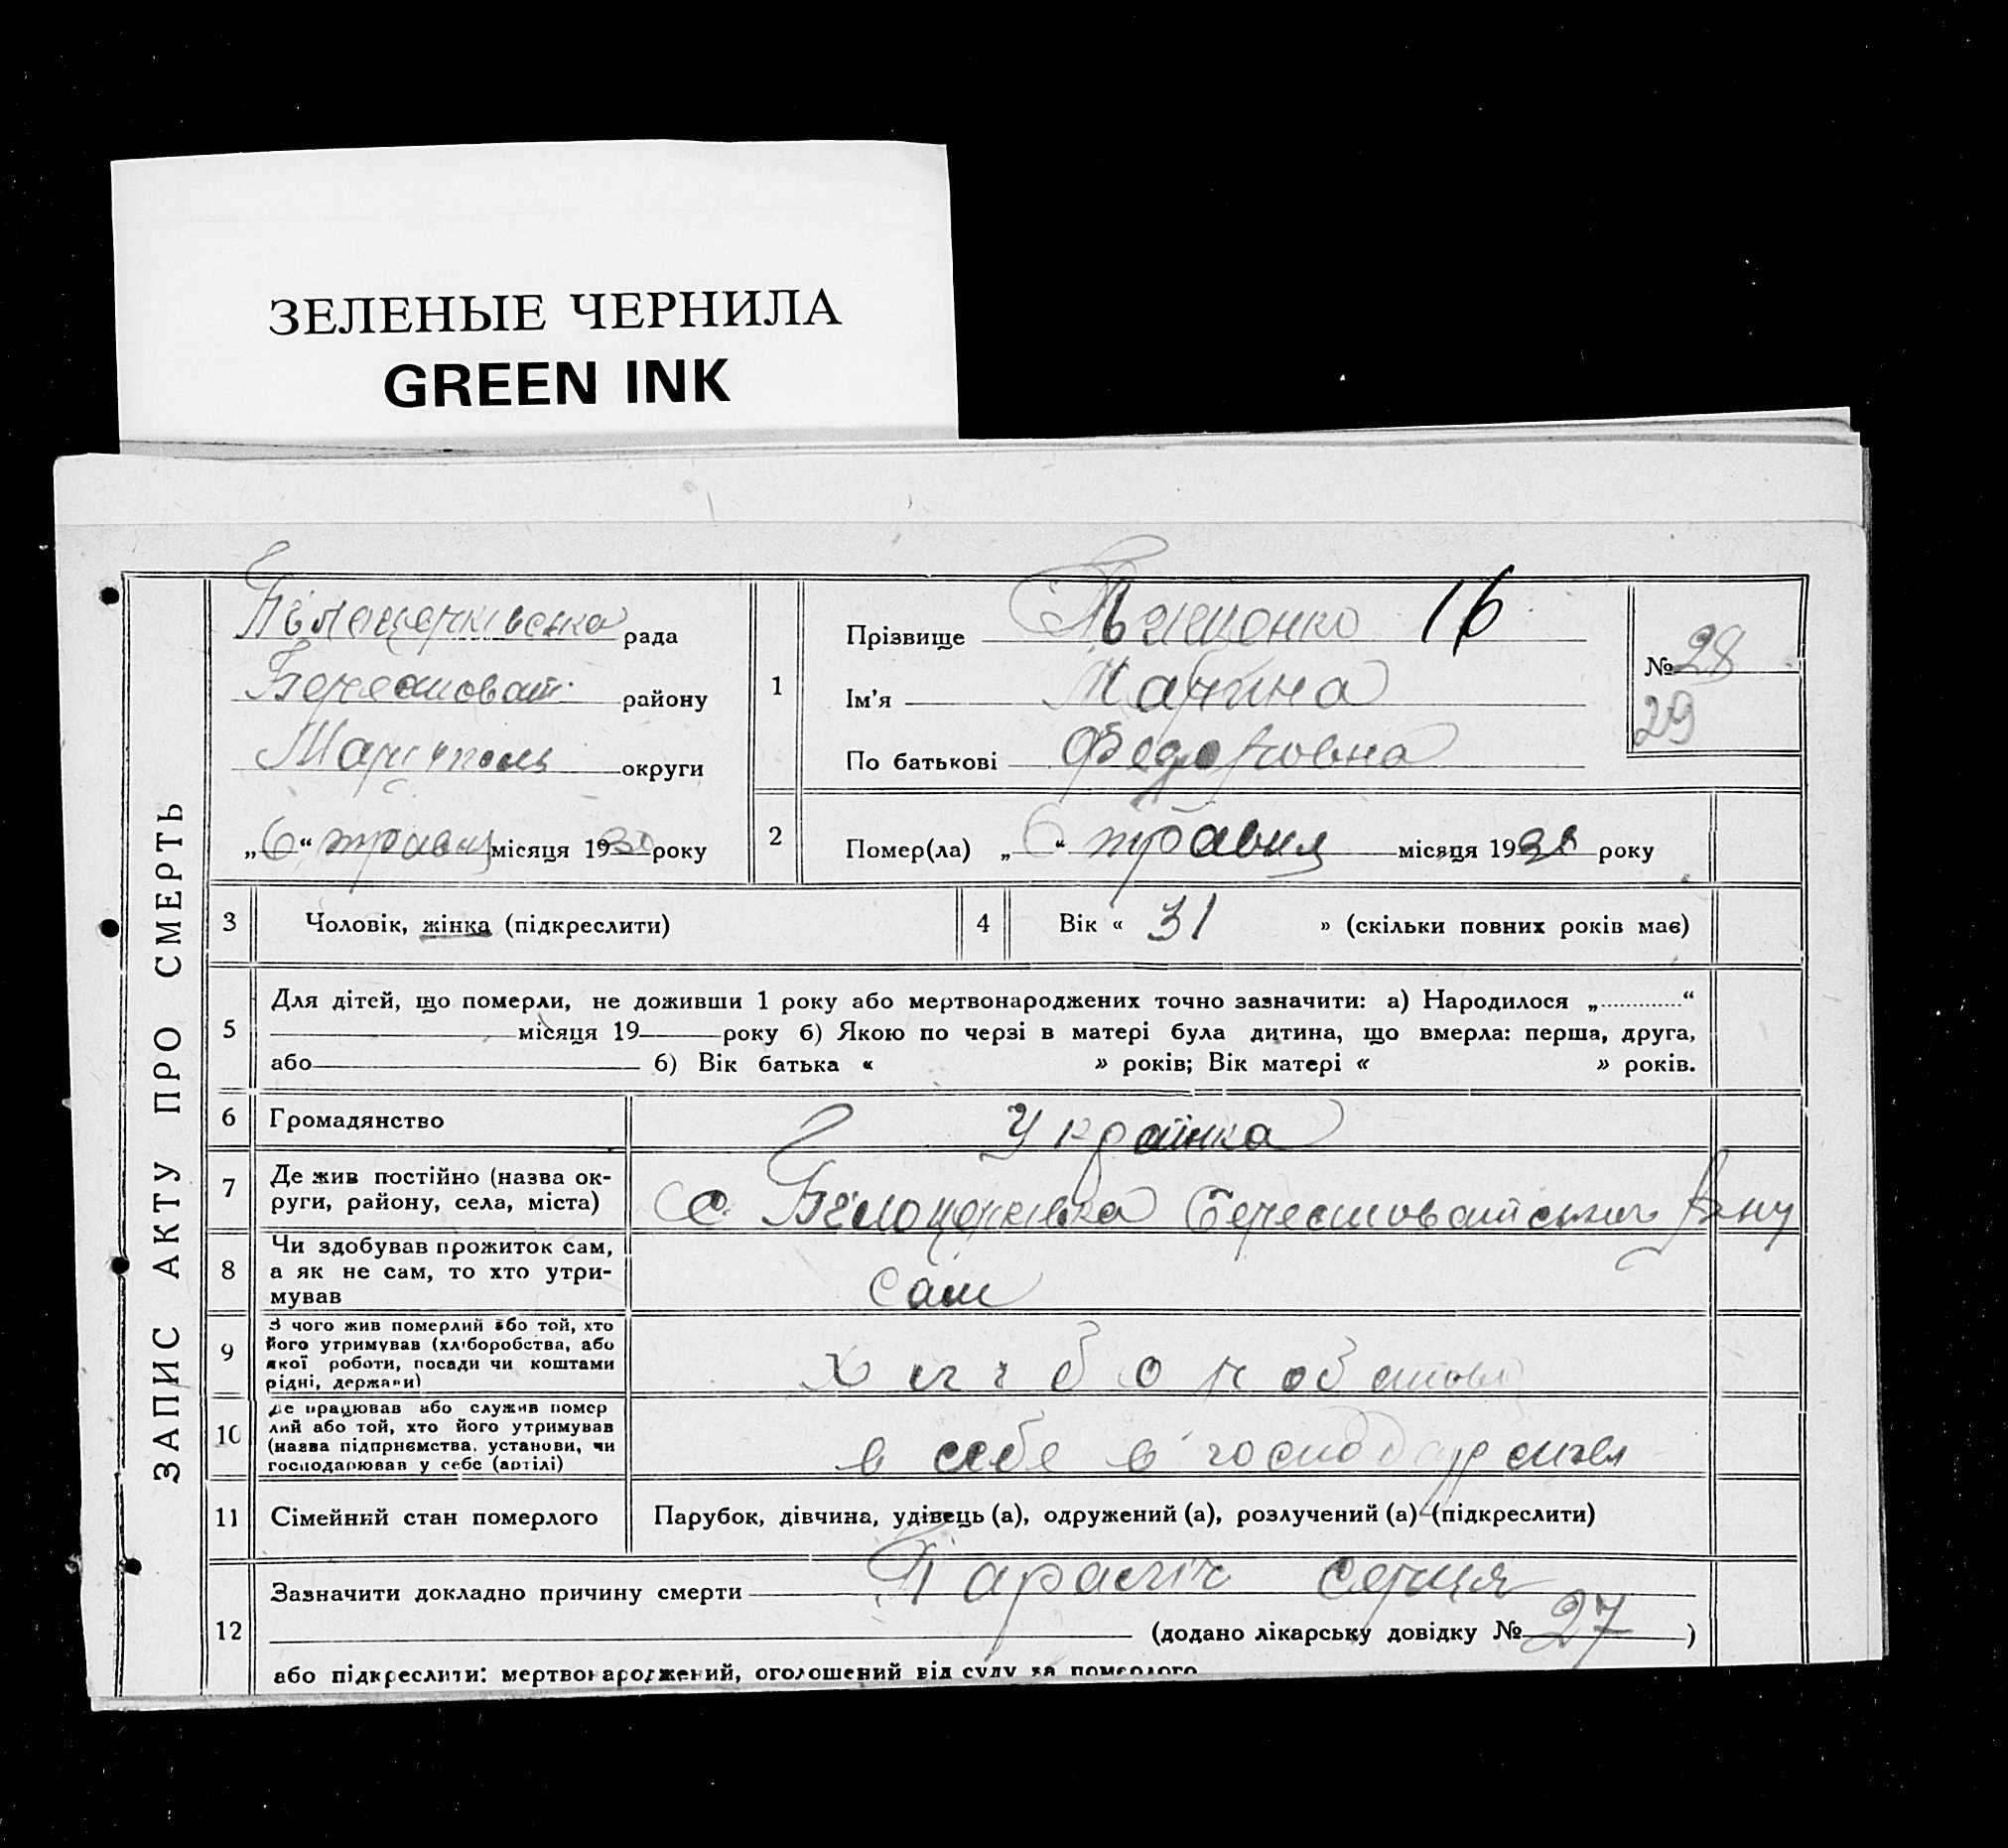 ЗЕЛЕНЫЕ ЧЕРНИЛА
GREEN INK
ЗАПИС АКТУ ПРО СМЕРТЬ
Білоцерківська рада
Берестоват. району
Маріупол округи
„6“ травня місяця 1930 року
1
Прізвище 16
Ім'я Марина
По батькові Федоровна
№ 28
29
2 Помер(ла) „6“ травня місяця 1930 року
3 Чоловік, жінка (підкреслити)
4 Вік « 31 » (скільки повних років має)
5 Для дітей, що померли, не доживши 1 року або мертвонароджених точно зазначити: а) Народилося „ “
місяця 19 року б) Якою по черзі в матері була дитина, що вмерла: перша, друга,
або б) Вік батька « » років; Вік матері « » років.
6 Громадянство Українка
7 Де жив постійно (назва ок-
руги, району, села, міста) с. Білоцерківка Берестоватського р-ну
8 Чи здобував прожиток сам,
а як не сам, то хто утри-
мував сам
9 З чого жив померлий або той, хто
його утримував (хліборобства, або
якої роботи, посади чи коштами
рідні, держави)
10 Де працював або служив помер
лий або той, хто його утримував
(назва підприємства, установи, чи
господарював у себе (артілі) в себе в господарстві
11 Сімейний стан померлого Парубок, дівчина, удівець (а), одружений (а), розлучений (а) (підкреслити)
12 Зазначити докладно причину смерти Параліч серця
(додано лікарську довідку № 27 )
або підкреслити: мертвонароджений, оголошений від суду за померлого